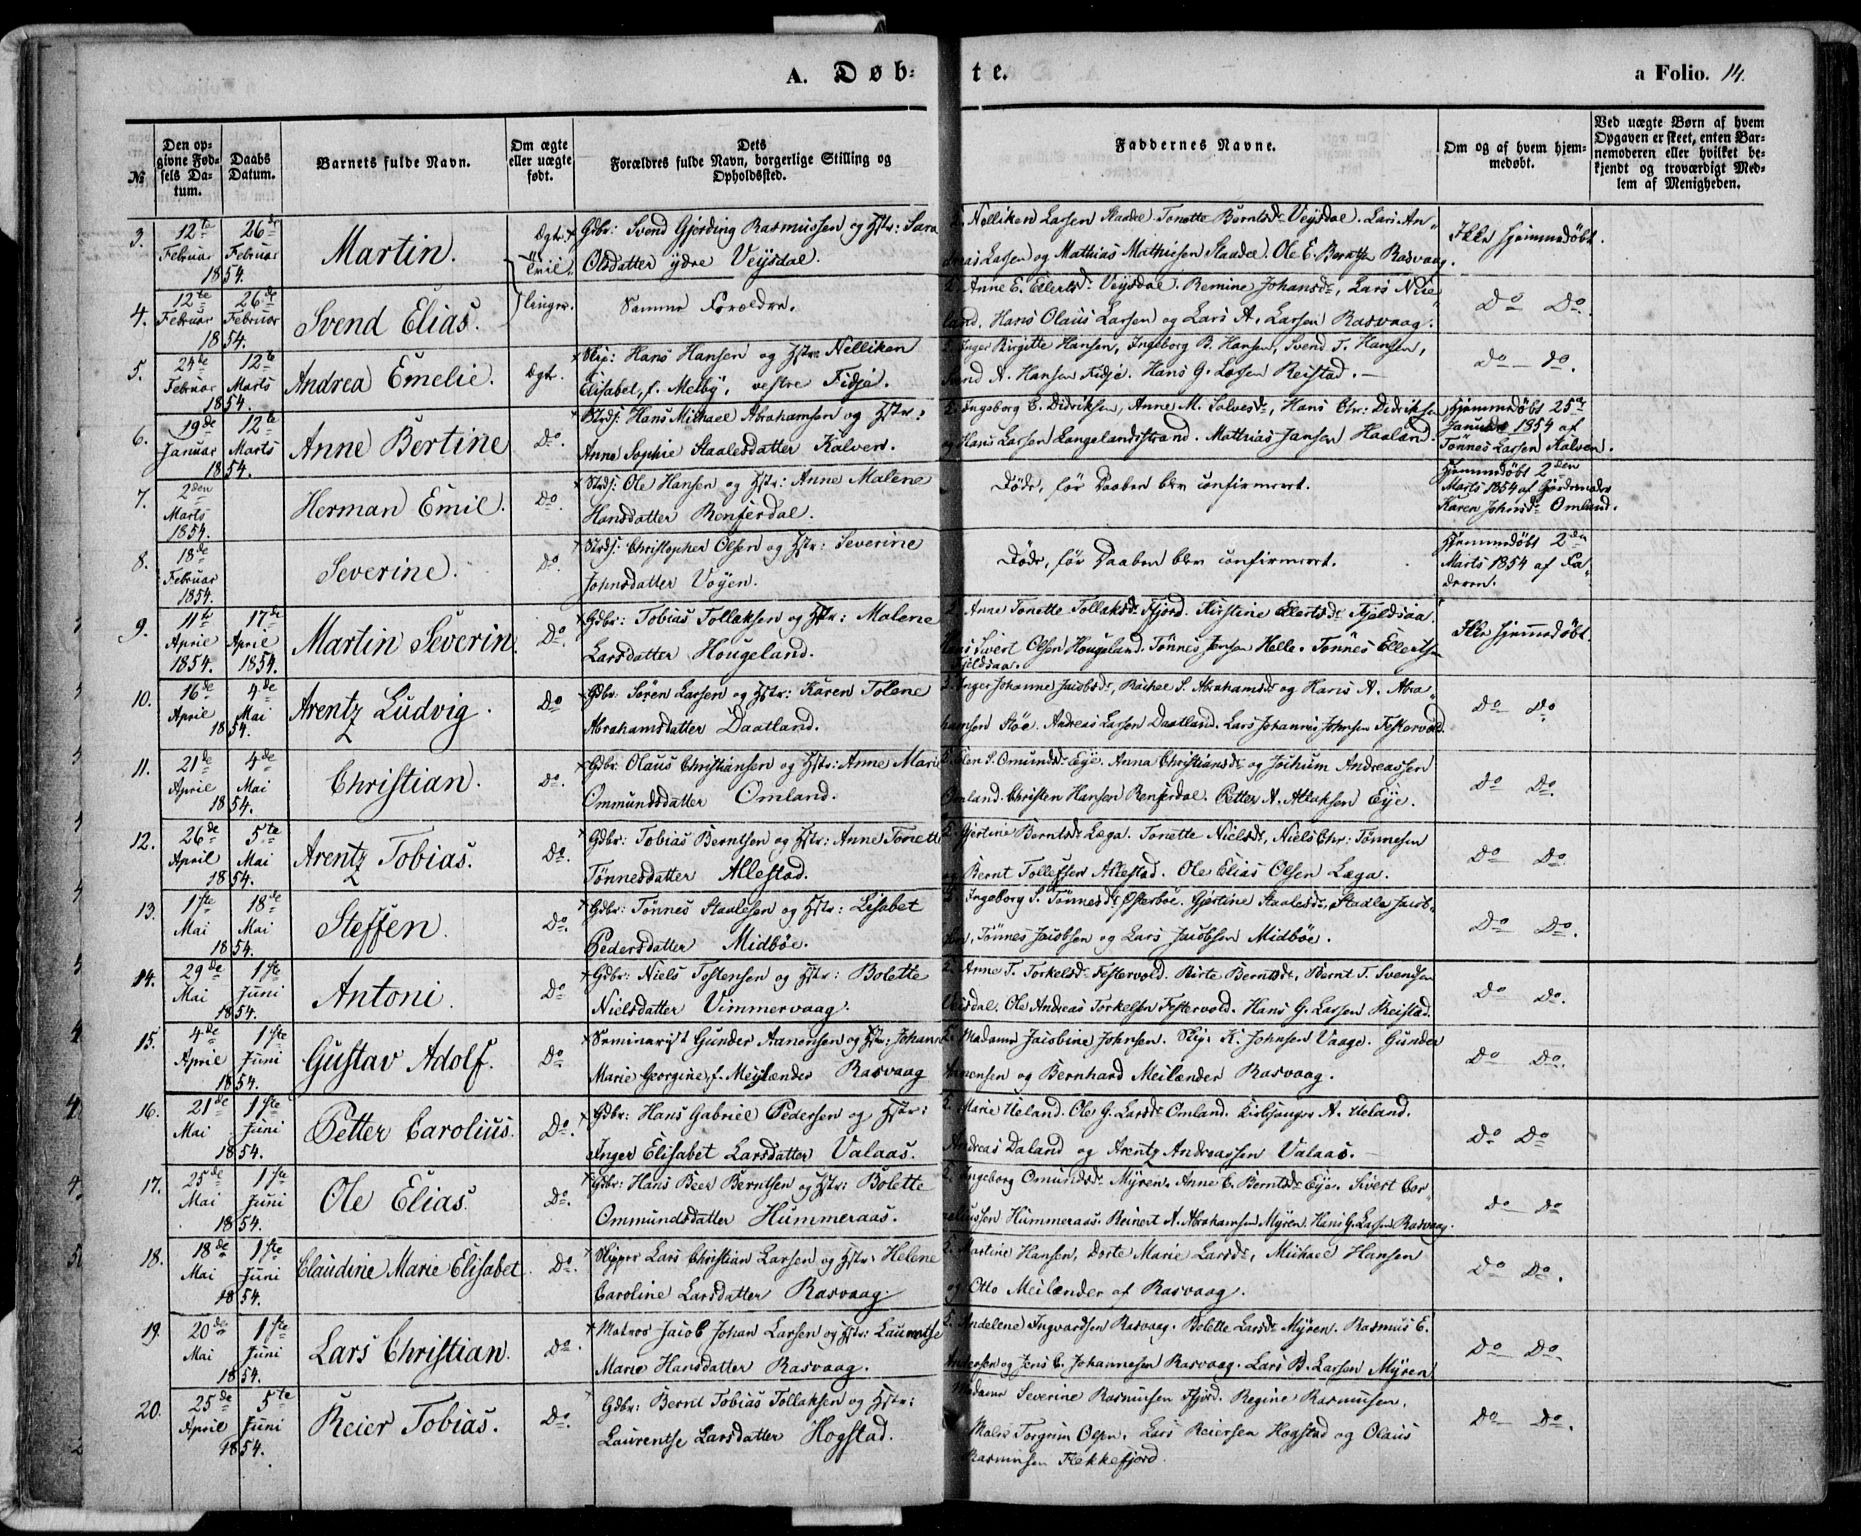 A. Døb-
te.
a Folio. 14.
№
Den op-
givne Fød-
sels Da-
tum.
Daabs
Datum.
Barnets fulde Navn.
Om ægte
eller uægte
født.
Dets
Forældres fulde Navn, borgerlige Stilling og
Opholdssted.
Faddernes Navne.
Om og af hvem hjem-
medøbt.
Ved uægte Børn af hvem
Opgaven er skeet, enten Bar-
nemoderen eller hvilket be-
kjendt og troværdigt Med-
lem af Menigheden.
3. 12te Februar 26de Februar 1854. Martin. Ægte. Gdbr: Svend Gjerding Rasmussen og Hstr: Sara
Olsdatter ydre Veisdal.
Nelliken Larsen Staadel. Tonette Berntsdr Veisdal. Lars An-
dreas Larsen og Mathias Mathiesen Staadel. Ole E. Berntsen Rasvaag.
Ikke hjemmedøbt.
4. 12te Februar 26de Februar 1854. Svend Elias. Tvil-
linger. Samme Forældre.
Anne E. Ellertsdr Veisdal. Bemine Johansdr, Lars
Hans Olaus Larsen og Lars A. Larsen Rasvaag.
Do Do.
5. 24de Februar 12te Marts 1854. Andrea Emelie. Ægte. Skip: Hans Hansen og Hstr: Nelliken
Elisabet, f. Melby, vestre Fidje.
Inger Birgitte Hansen, Ingeborg B. Hansen, Svend T. Hansen,
Svend A. Hansen Fidje. Hans G. Larsen Reistad.
Do Do.
6. 19de Januar 12te Marts 1854. Anne Bertine Do. Strds: Hans Michael Abrahamsen og Hstr:
Anne Sophie Staalesdatter Kalven.
Ingeborg C. Didriksen, Anne M. Salvesdr, Hans Chr: Didriksen
og Hans Larsen Langelandsstrand. Mathias Jansen Haaland.
Hjemmedøbt 25de
Januar 1854 af
Tønnes Larsen Kalven.
7. 2den Marts 1854. Herman Emil. Do. Strds: Ole Hansen og Hstr: Anne Malene
Hansdatter Renferdal.
Døde, før Daaben blev confirmeret.
Hjemmedøbt 2den
Marts 1854 af Gjordemoder
Karen Johnsdr Omland.
8. 18de Februar 1854. Severine. Do. Strds: Christopher Olsen og Hstr: Severine
Johnsdatter Vøyen.
Døde, før Daaben blev confirmeret.
Hjemmedøbt 2den
Marts 1854 af Fa-
deren.
9. 11te April 1854. 17de April 1854. Martin Severin. Do. Gdbr: Tobias Tollaksen og Hstr: Malene
Larsdatter Hougeland.
Anne Tonette Tollaksdr Fjord. Kirstine Ellertsdr Fjeldsaa.
Sivert Olsen Hougeland. Tønnes Jensen Helle. Tønnes Ellertsen
Fjeldsaa.
Ikke hjemmedøbt.
10. 16de April 4de Mai 1854. Arentz Ludvig. Do. Gdbr: Søren Larsen og Hstr: Karen Tolene
Abrahamsdatter Daatland.
Inger Johanne Jacobsdr, Rachel S. Abrahamsdr og Hans A. Abra-
hamsen Støe. Andreas Larsen Daatland. Lars Johannes Johnsen Festervold.
Do Do
11. 21de April 4de Mai 1854. Christian. Do. Gdbr: Olaus Christiansen og Hstr: Anne Marie
Ommundsdatter Omland.
S. Omundsdr Eye. Anna Christiansdr og Jochum Andreassen
Omland. Christen Hansen Renferdal. Petter A. Atlaksen Eye.
Do Do.
12. 26de April 5te Mai 1854. Arentz Tobias. Do. Gdbr: Tobias Berntsen og Hstr: Anne Tonette
Tønnesdatter Allestad.
Gjertine Berntsdr Læga. Tonette Nielsdr, Niels Chr: Tønnesen
og Bernt Tollefsen Allestad. Ole Elias Olsen Læga.
Do Do.
13. 1ste Mai 18de Mai 1854. Steffen. Do. Gdbr: Tønnes Staalesen og Hstr: Lisabet
Pedersdatter Midbøe.
Ingeborg S. Tønnesdr Østerbøe. Gjertine Staalesdr, Staale Jacob-
sen, Tønnes Jacobsen og Lars Jacobsen Midbøe.
Do Do.
14. 29de Mai 1ste Juni 1854. Antoni. Do Gdbr: Niels Tostensen og Hstr: Bolette
Nielsdatter Vimmervaag.
Anne T. Torkelsdr Festervold. Birte Berntsdr, Bernt T. Svendsen
Veisdal. Ole Andreas Torkelsen Festervold. Hans G. Larsen Reistad.
Do Do.
15. 4de April 1ste Juni 1854. Gustav Adolf. Do Seminarist Gunder Aanensen og Hstr: Johanne
Marie Georgine, f. Meilænder Rasvaag
Madame Jacobine Johnsen. Skip: K. Johnsen Vaage. Gunder
Annensen og Bernhard Meilænder Rasvaag.
Do Do.
16. 21de Mai 1ste Juni 1854. Petter Carolius. Do. Gdbr: Hans Gabriel Pedersen og Hstr:
Inger Elisabet Larsdatter Valaas.
Marie Ueland. Ole G. Larsdr Omland. Kirkesanger A. Ueland.
Andreas Daland og Arentz Andreassen Valaas.
Do Do
17. 25de Mai 1ste Juni 1854. Ole Elias. Do. Gdbr: Hans Beer Berntsen og Hstr: Bolette
Ommundsdatter Hummeraas.
Ingeborg Omundsdr Myren. Anne C. Berntsdr Eye. Sivert Cor-
neliussen Hummeraas. Reinert A. Abrahamsen Myren. Hans G. Larsen Rasvaag.
Do Do
18. 18de Mai 1ste Juni 1854. Claudine Marie Elisabet. Do. Skipper Lars Christian Larsen og Hstr: Helene
Caroline Larsdatter Rasvaag.
Martine Hansen, Dorte Marie Larsdr, Michael Hansen
og Otto Meilænder af Rasvaag.
Do Do.
19. 20de Mai 1ste Juni 1854. Lars Christian. Do. Matros Jacob Johan Larsen og Hstr: Laurentse
Marie Hansdatter Rasvaag.
Andelene Ingvardsen Rasvaag. Bolette Larsdr Myren. Rasmus E.
Andersen og Jens C. Johannesen Rasvaag. Lars B. Larsen Myren
Do Do.
20. 25de April 5te Juni 1854. Reier Tobias. Do. Gdbr: Bernt Tobias Tollaksen og Hstr:
Laurentse Larsdatter Hogstad.
Madame Severine Rasmusen Fjord. Regine Rasmusen.
Torgrim Olsen. Lars Reiersen Hogstad og Olaus
Rasmusen Flekkefjord.
Do Do.